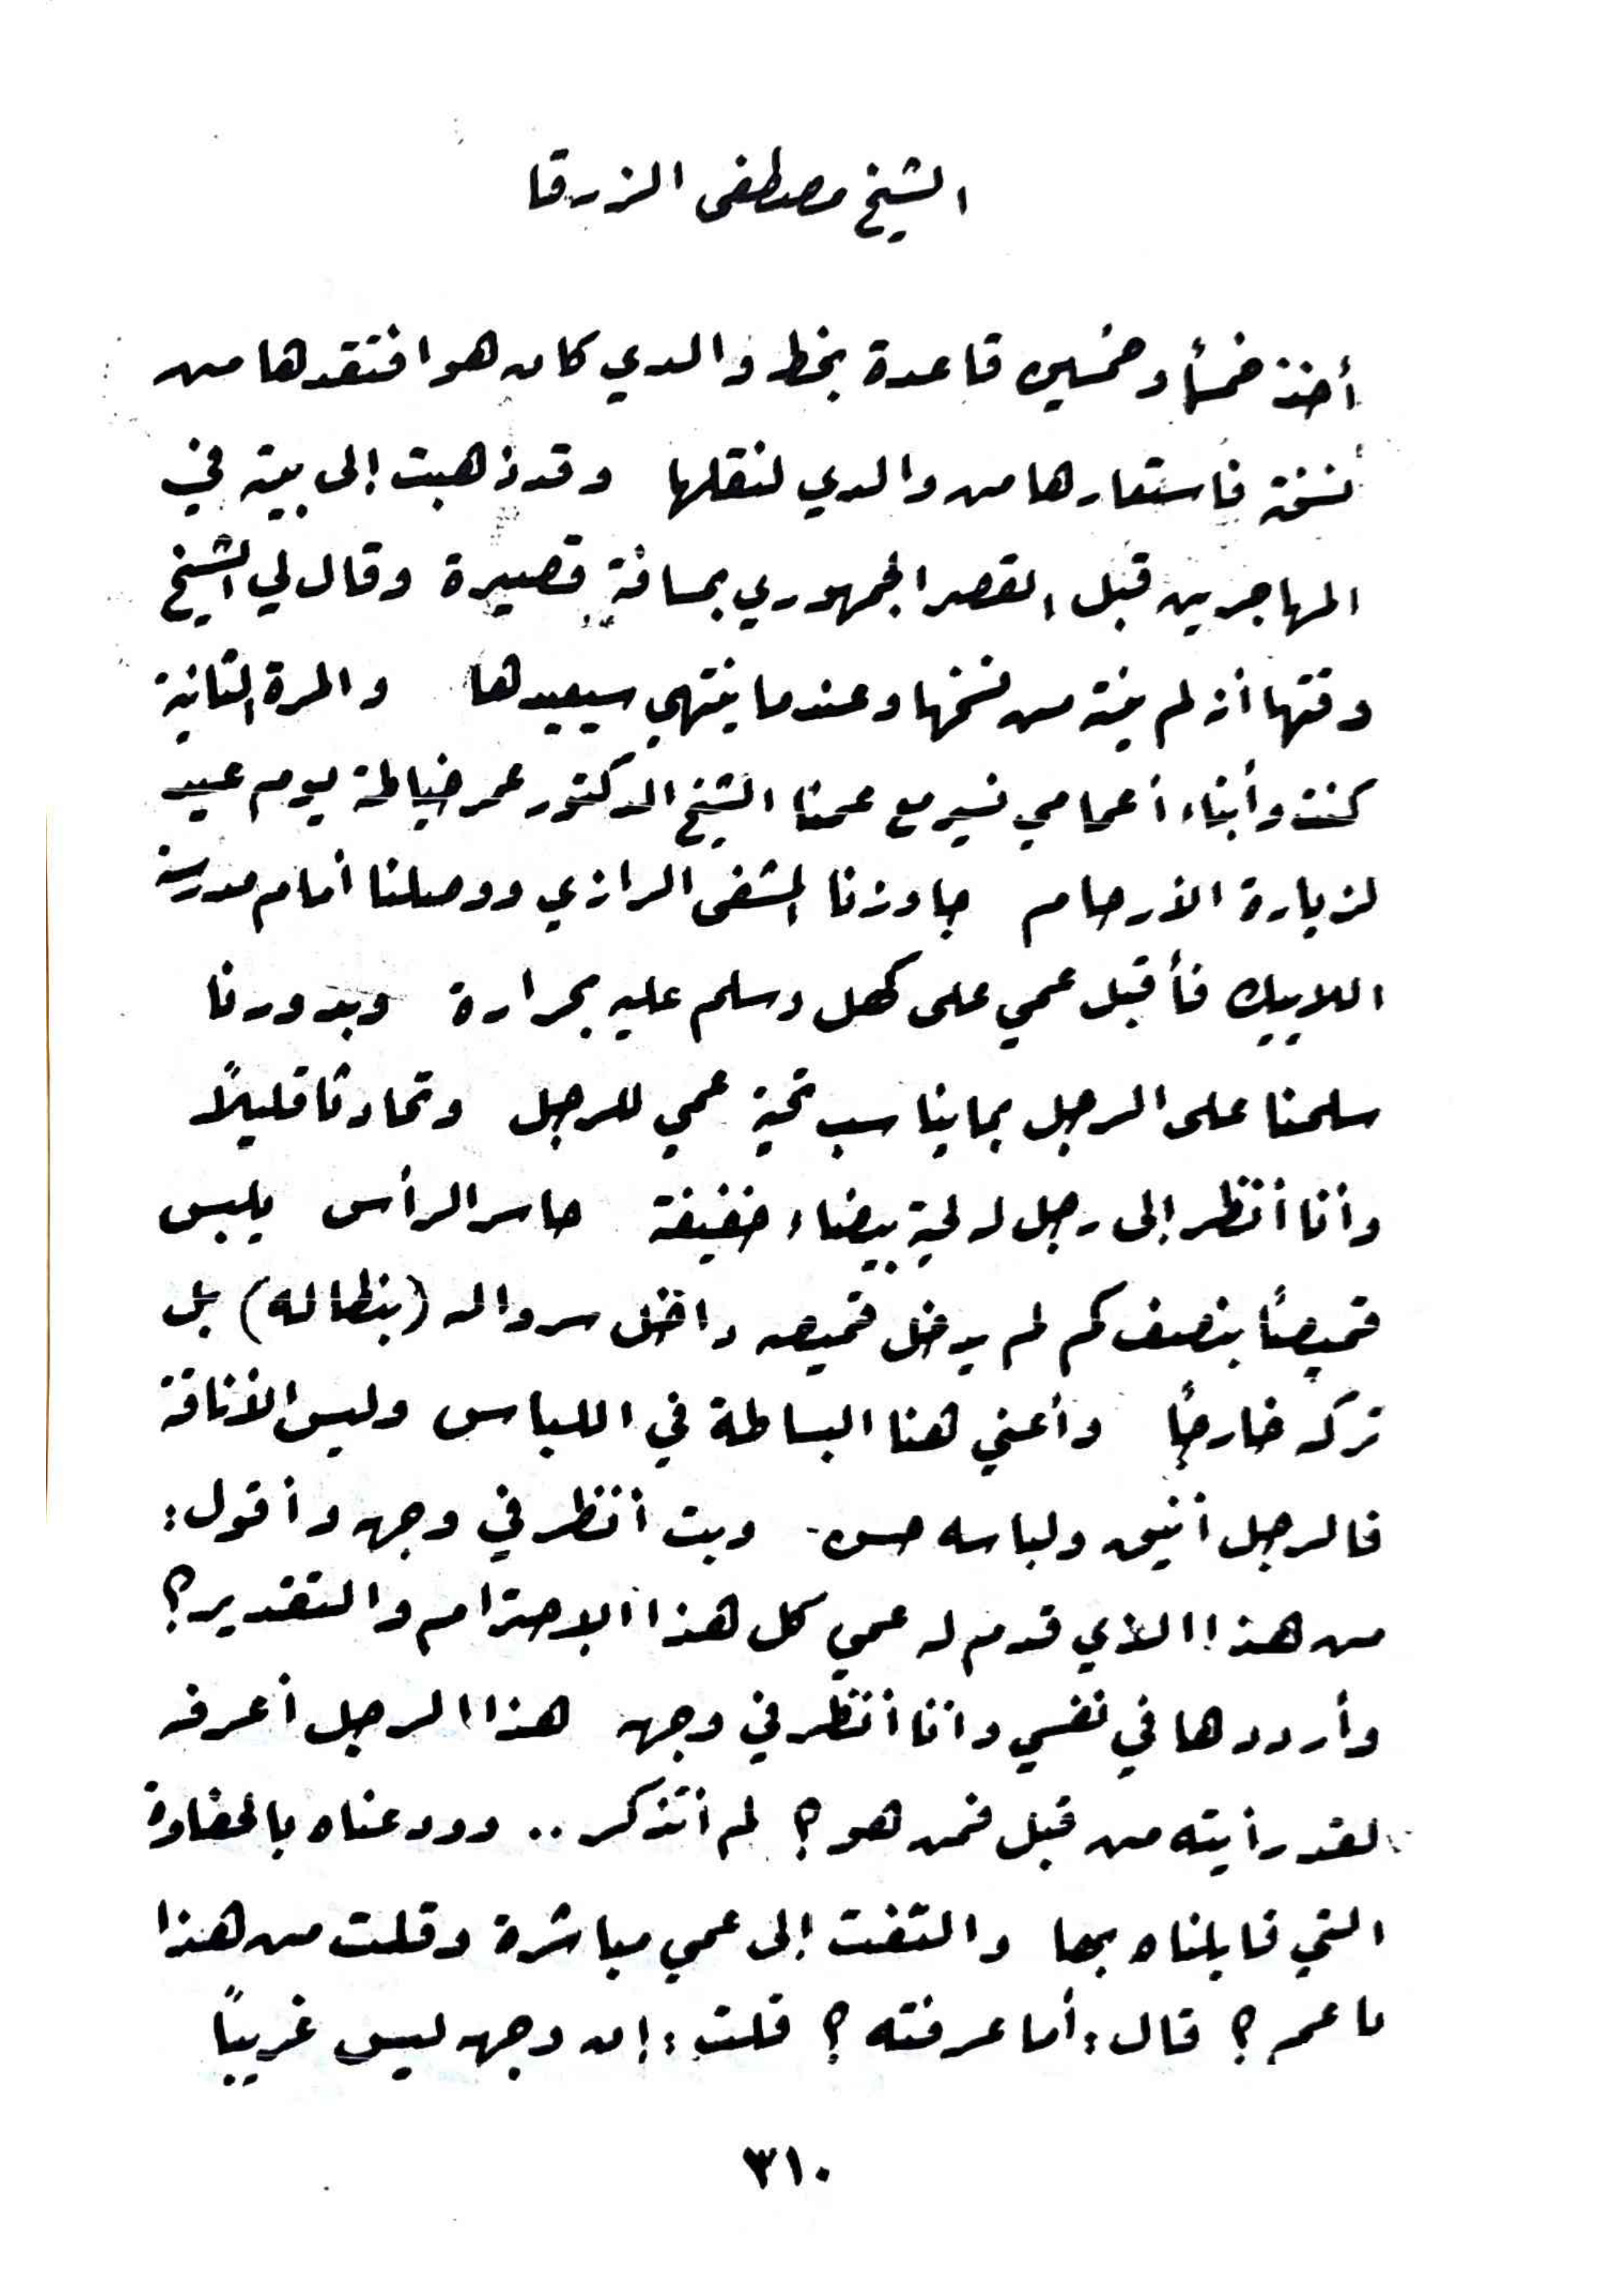 الشيخ مصطفى الزرقا
أخذ خمسأ وخمسين قاعدة بخط والدي كان هو افتقدها من
نسخة فاستعارها من والدي لنقلها وقد ذهبت إلى بيته في
المهاجرين قبل القصر الجمهوري بمسافة قصيرة وقال لي الشيخ
وقتها أنه لم ينته من نسخها وعندما ينتهي سيعيدها والمرة الثانية
كنت وأبناء أعمامي نسير مع عمنا الشيخ الدكتور عمر خياطة يوم عيد
لزيارة الأرحام جاوزنا المشفى الرازي ووصلنا أمام مدرسة
اللاييك فأقبل عمي على كهل وسلم عليه بحرارة وبدورنا
سلمنا على الرجل بما يناسب تحية عمي للرجل وتحادثا قليلاً
وأنا أنظر إلى رجل له لحية بيضاء خفيفة حاسر الرأس يلبس
قميصاً بنصف كم لم يدخل قميصه داخل سرواله (بنطاله) بل
تركه خارجاً وأعني هنا البساطة في اللباس وليس الأناقة
فالرجل أنيق ولباسه حسن. وبت أنظر في وجهه وأقول:
من هذا الذي قدم له عمي كل هذا الاحترام والتقدير؟
وأرددها في نفسي وأنا أنظر في وجهه هذا الرجل أعرفه
لقد رأيته من قبل فمن هو؟ لم أتذكر .. وودعناه بالحفاوة
التي قابلناه بها والتفت إلى عمي مباشرة وقلت من هذا
يا عم؟ قال: أما عرفته؟ قلت: إن وجهه ليس غريباً
٣١٠